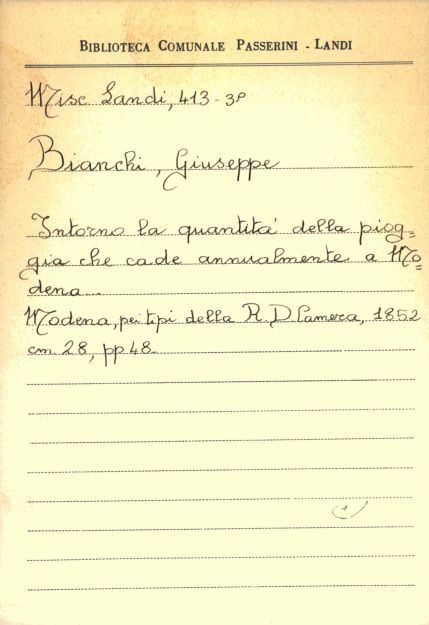 BIBLIOTECA COMUNALE PASSERINI - LANDI
Misc Landi, 413-3º
Bianchi, Giuseppe
Intorno la quantità della piog=
gia che cade annualmente a Mo=
dena...
Modena, pei tipi della R. D. Camera, 1852
cm. 28, pp 48.